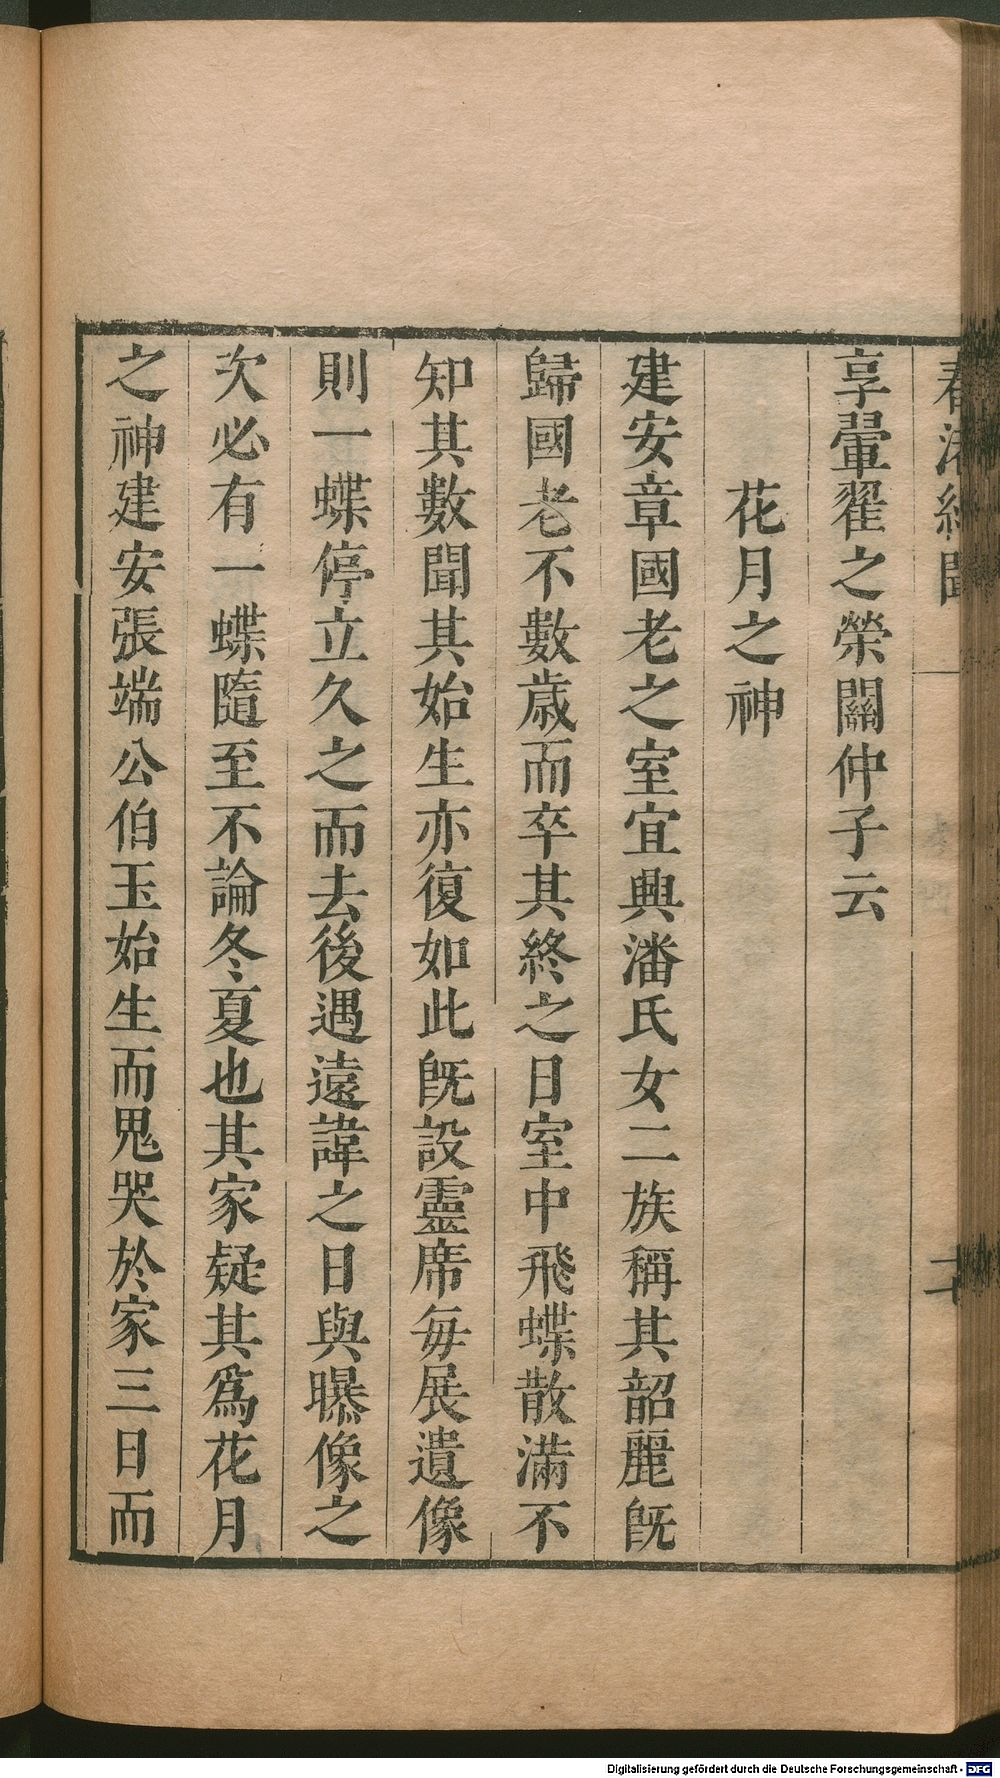 春渚紀聞
享翬翟之榮關仲子云
花月之神
建安章國老之室宜興潘氏女二族稱其韶麗既
歸國老不數歲而卒其終之日室中飛蝶散滿不
知其數聞其始生亦復如此既設靈席每展遺像
則一蝶停立久之而去後遇遠諱之日與曝像之
次必有一蝶隨至不論冬夏也其家疑其爲花月
之神建安張端公伯玉始生而鬼哭於家三日而
Digitalisierung gefördert durch die Deutsche Forschungsgemeinschaft - DFG